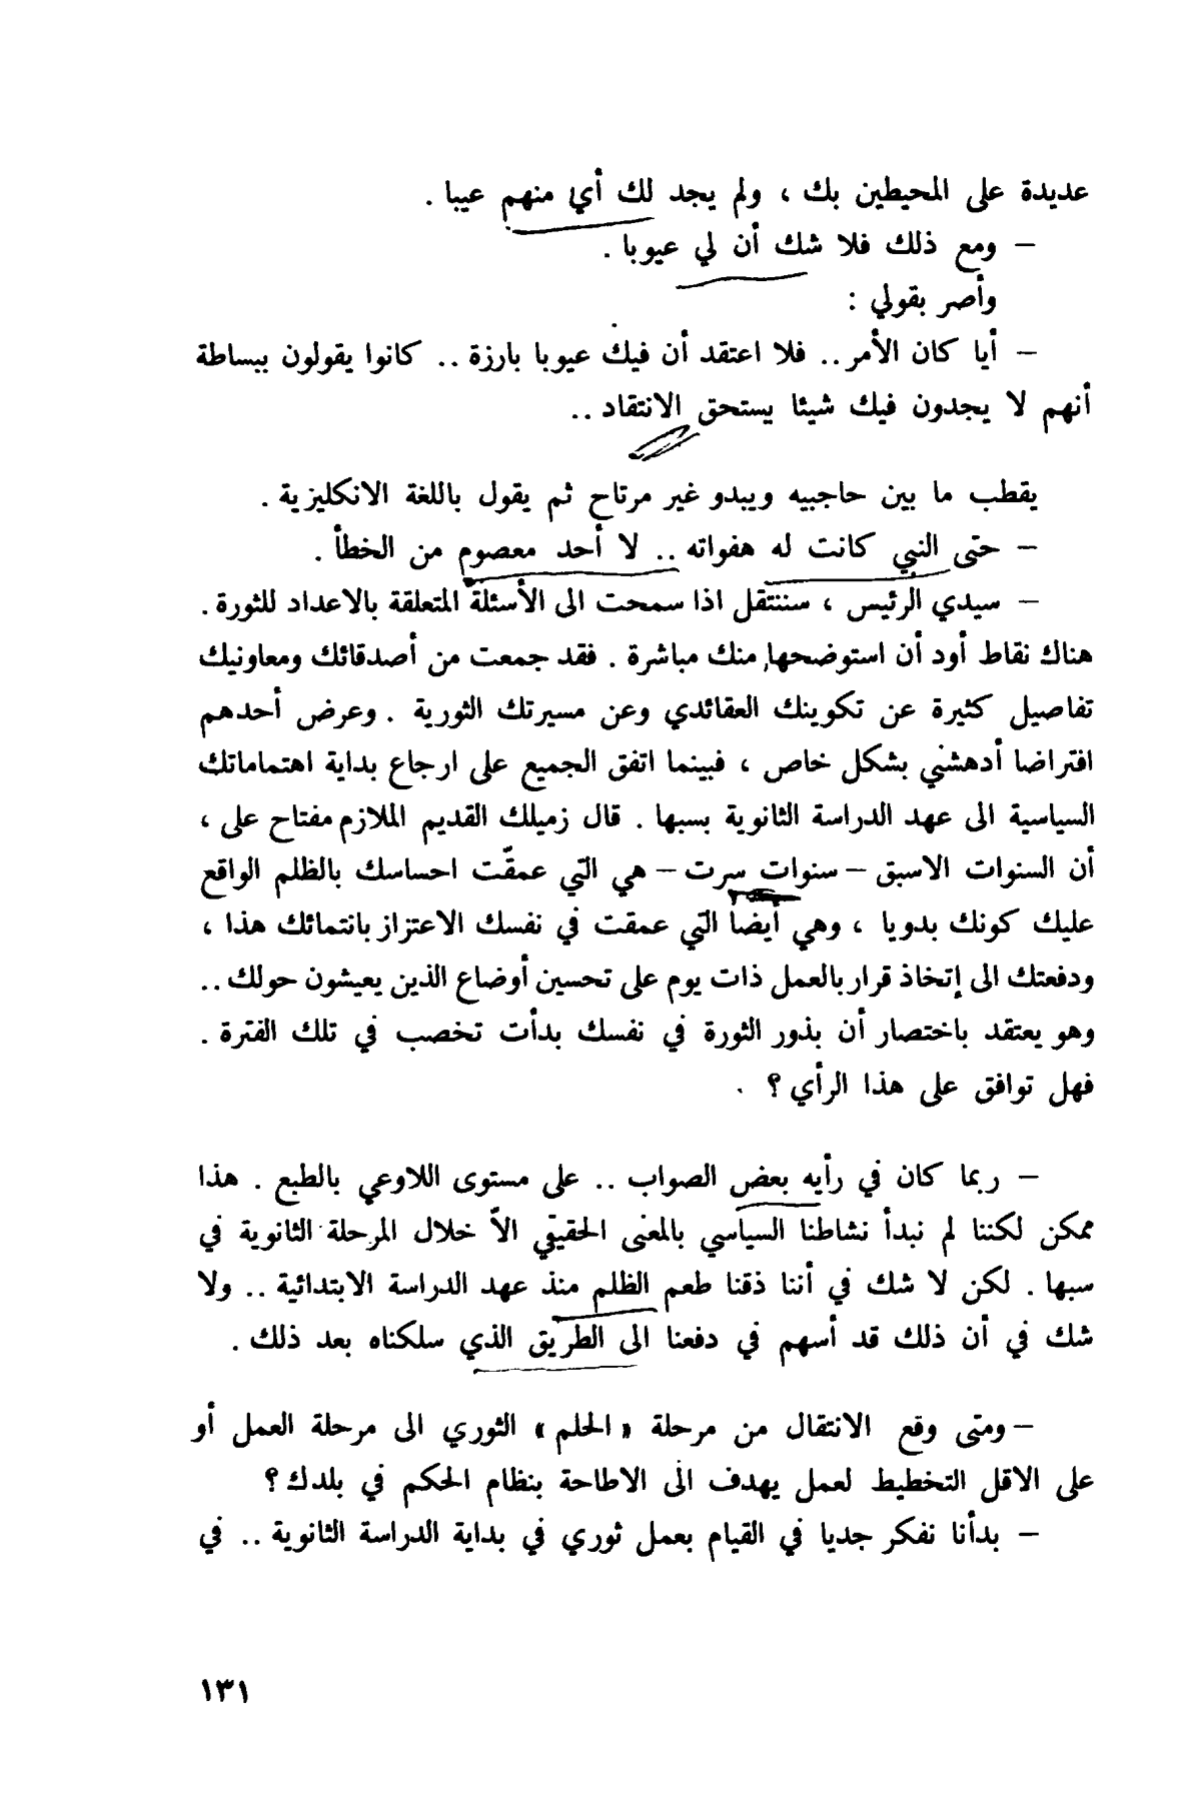 عديدة على المحيطين بك ، ولم يجد لك أي منهم عيبا .
– ومع ذلك فلا شك أن لي عيوبا .
وأصر بقولي :
– أيا كان الأمر .. فلا اعتقد أن فيك عيوبا بارزة .. كانوا يقولون ببساطة
أنهم لا يجدون فيك شيئا يستحق الانتقاد ..
يقطب ما بين حاجبيه ويبدو غير مرتاح ثم يقول باللغة الانكليزية .
– حتى النبي كانت له هفواته .. لا أحد معصوم من الخطأ .
– سيدي الرئيس ، سننتقل اذا سمحت الى الأسئلة المتعلقة بالاعداد للثورة .
هناك نقاط أود أن استوضحها منك مباشرة . فقد جمعت من أصدقائك ومعاونيك
تفاصيل كثيرة عن تكوينك العقائدي وعن مسيرتك الثورية . وعرض أحدهم
افتراضا أدهشني بشكل خاص ، فبينما اتفق الجميع على ارجاع بداية اهتماماتك
السياسية الى عهد الدراسة الثانوية بسبها . قال زميلك القديم الملازم مفتاح على ،
أن السنوات الاسبق – سنوات سرت – هي التي عمقّت احساسك بالظلم الواقع
عليك كونك بدويا ، وهي أيضا التي عمقت في نفسك الاعتزاز بانتمائك هذا ،
ودفعتك الى إتخاذ قرار بالعمل ذات يوم على تحسين أوضاع الذين يعيشون حولك ..
وهو يعتقد باختصار أن بذور الثورة في نفسك بدأت تخصب في تلك الفترة .
فهل توافق على هذا الرأي ؟ .
– ربما كان في رأيه بعض الصواب .. على مستوى اللاوعي بالطبع . هذا
ممكن لكننا لم نبدأ نشاطنا السياسي بالمعنى الحقيقي الاّ خلال المرحلة الثانوية في
سبها . لكن لا شك في أننا ذقنا طعم الظلم منذ عهد الدراسة الابتدائية .. ولا
شك في أن ذلك قد أسهم في دفعنا الى الطريق الذي سلكناه بعد ذلك .
– ومتى وقع الانتقال من مرحلة « الحلم » الثوري الى مرحلة العمل أو
على الاقل التخطيط لعمل يهدف الى الاطاحة بنظام الحكم في بلدك ؟
– بدأنا نفكر جديا في القيام بعمل ثوري في بداية الدراسة الثانوية .. في
١٣١